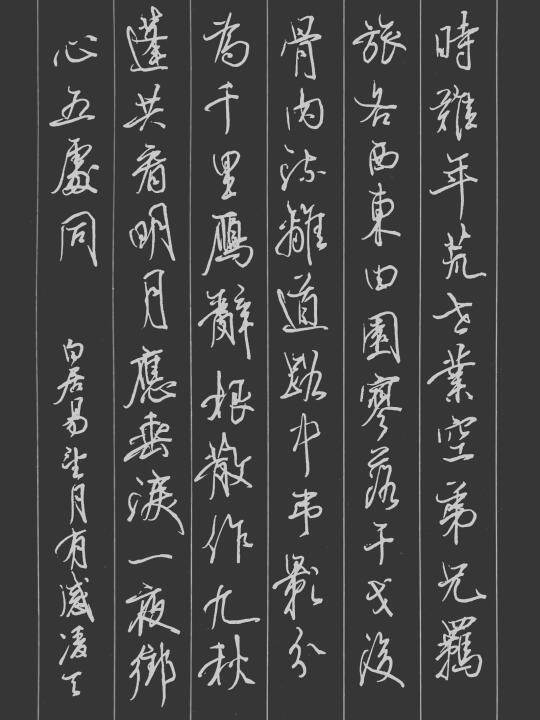 時難年荒世業空弟兄羈
旅各西東田園寥落干戈後
骨肉流離道路中弔影分
為千里鴈辭根散作九秋
蓬共看明月應垂淚一夜鄉
心五處同
白居易望月有感凌